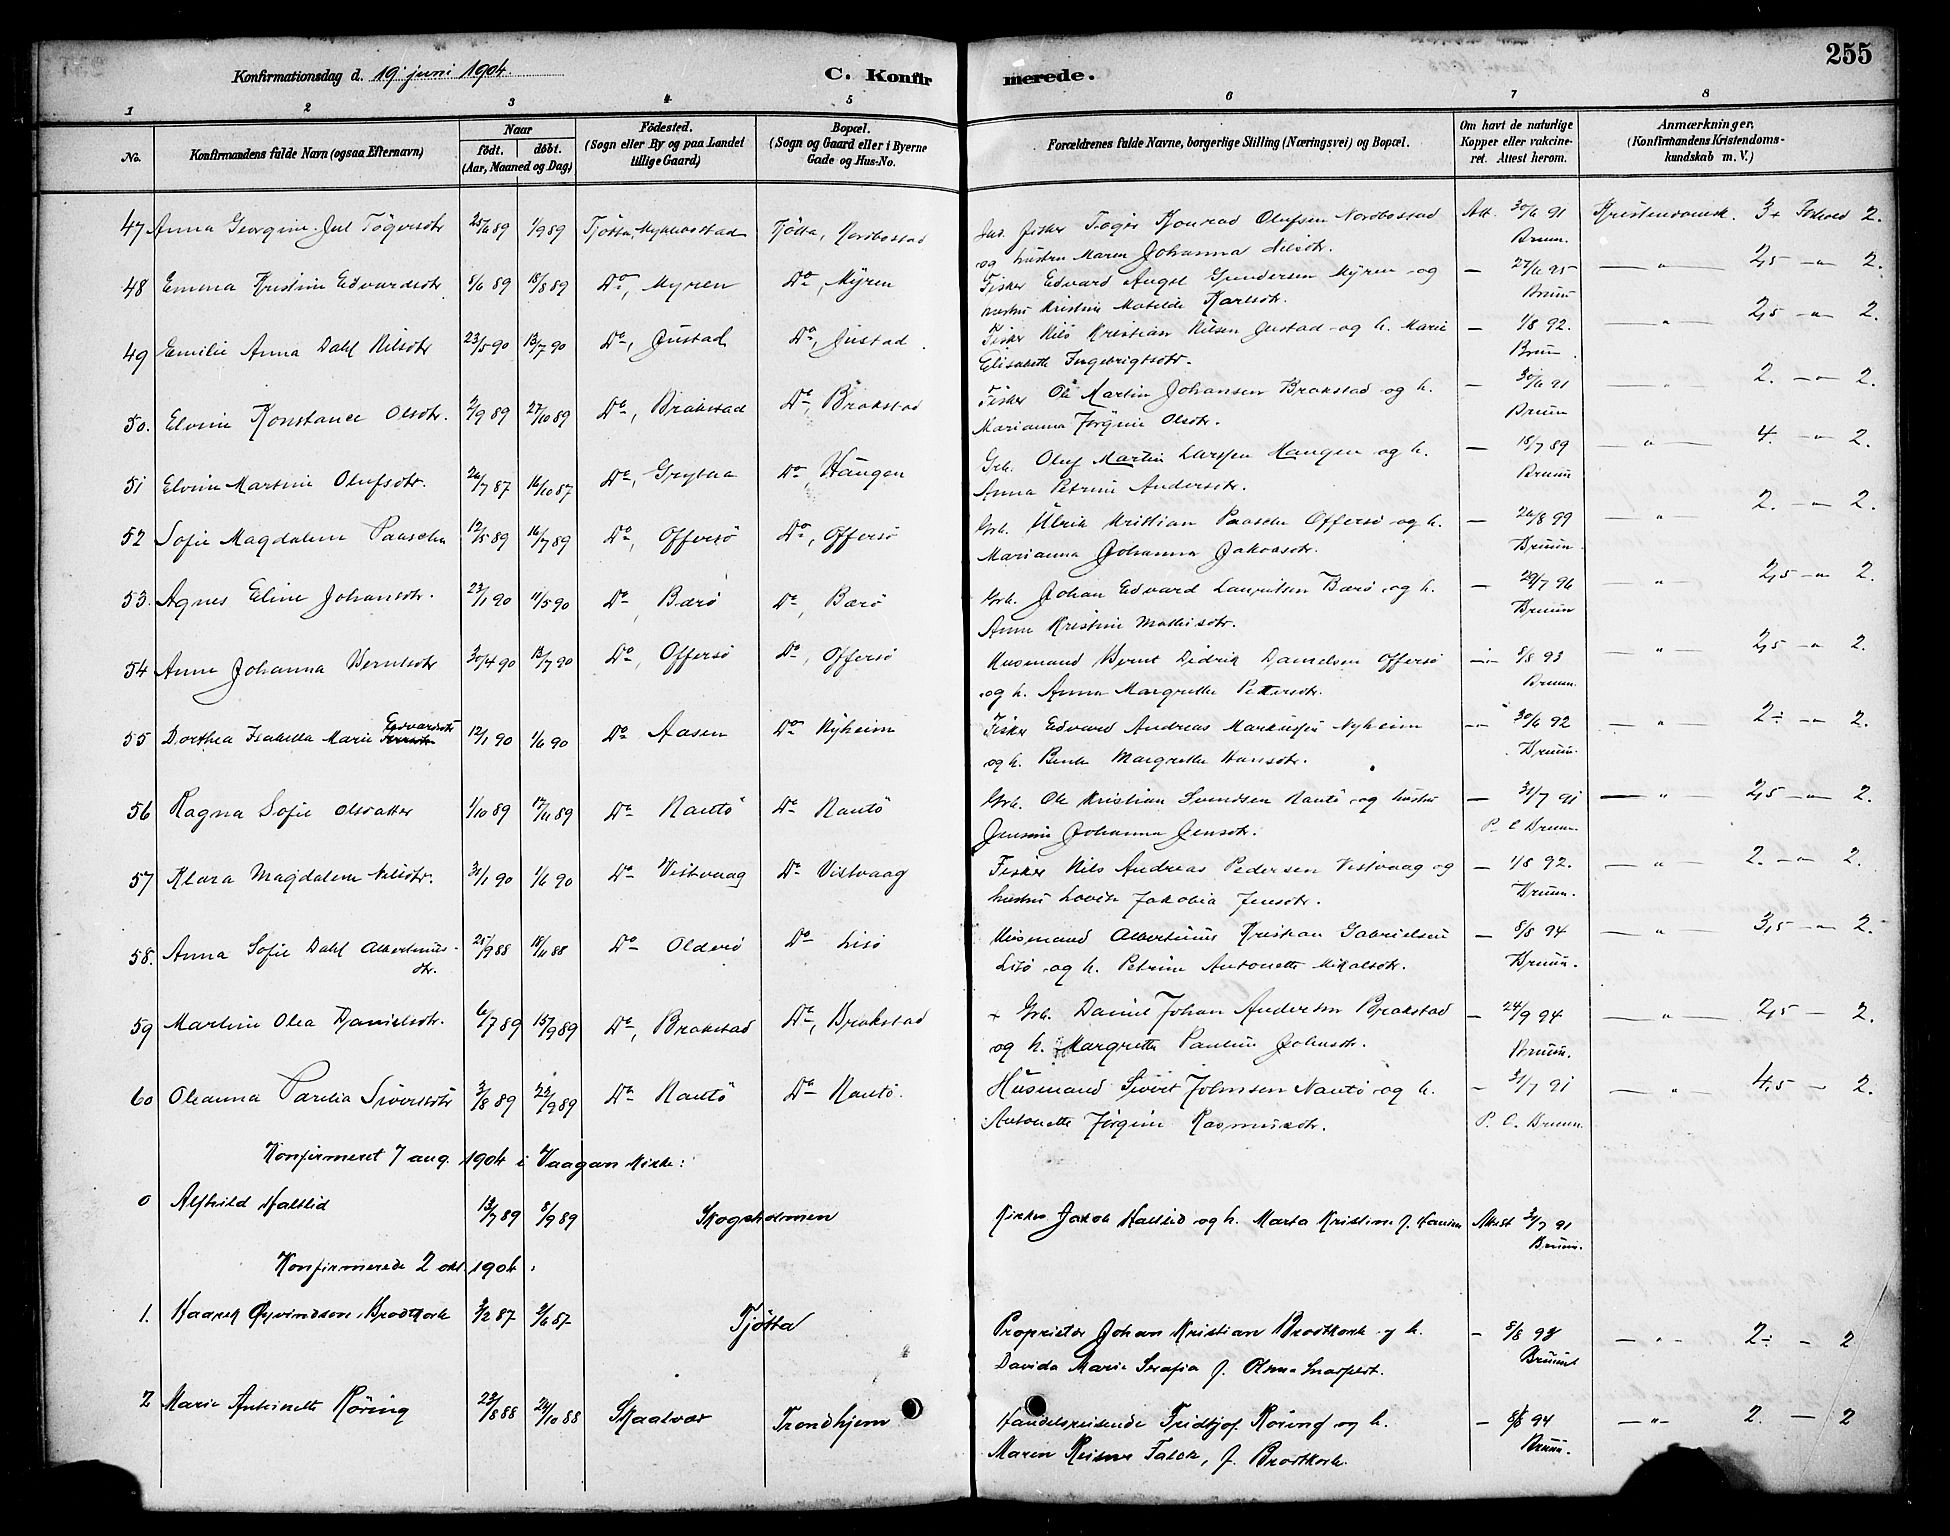 255
Konfirmationsdag d. 19' juni 1904.
C. Konfirmerede.
1 2 3 4 5 6 7 8
No.
Konfirmandens fulde Navn (ogsaa Efternavn)
Naar
født. døbt.
(Aar, Maaned og Dag)
Fødested.
(Sogn eller By og paa Landet
tillige Gaard)
Bopæl.
(Sogn og Gaard eller i Byerne
Gade og Hus-No.
Forældrenes fulde Navne, borgerlige Stilling (Næringsvei) og Bopæl.
Om havt de naturlige
Kopper eller vakcine-
ret. Attest herom.
Anmærkninger.
(Konfirmandens Kristendoms-
kundskab m. V.)
47 Anna Georgine Tøgersdtr 25/6 89 1/9 89 Tjøtta, Mykklebostad Tjøtta, Nordbostad Fisker Tøger Konrad Olufsen Nordbostad Att. 30/6 91 Kristendomsk. 3+ Forhold 2.
og hustru Maren Johanna Nilsdtr. Bruun.
48 Emma Kristine Edvardsdtr 8/6 89 18/8 89 Do, Myren Do, Myren Fisker Edvard Angel Gundersen Myren og — 27/6 95 — " — 2,5 — " — 2.
hustru Kristine Matilde Karlsdtr. Bruun
49 Emilie Anna Dahl Nilsdtr 23/5 90 13/7 90 Do, Justad Do, Justad Fisker Nils Kristian Nilsen Justad og h. Marie — 1/8 92. — " — 2,5 — " — 2.
Elisabeth Ingebrigtsdtr. Bruun
50. Elvine Konstance Olsdtr. 2/9 89 27/10 89 Do, Brakstad Do, Brakstad Fisker Ole Martin Johansen Brakstad og h. — 30/6 91 — " — 2. — " — 2.
Marianna Jørgine Olsdtr. Bruun
51 Elvine Martine Olufsdtr. 26/7 87 16/10 87 Do, Grytaa Do, Haugen Grb. Oluf Martin Larssen Haugen og h. — 18/7 89 — " — 4. — " — 2.
Anna Petrine Andersdtr. Bruun
52 Sofie Magdalene Paasche 12/5 89 16/7 89 Do, Offersø Do, Offersø Grb. Ulrik Kristian Paasche Offersø og h. — 26/8 99 — " — 2. — " — 2.
Marianna Johanna Jakobsdtr. Bruun.
53. Agnes Eline Johansdtr. 23/1 90 11/5 90 Do, Barø Do, Barø Grb. Johan Edvard Lauritsen Barø og h. — 29/7 96 — " — 2,5 — " — 2.
Anne Kristine Mathisdtr. Bruun
54 Anne Johanna Berntsdtr 30/4 90 13/7 90 Do, Offersø Do, Offersø Husmand Bernt Didrik Danielsen Offersø — 8/8 93 — " — 2,5 — " — 2.
og h. Anna Margrethe Pettersdtr. Bruun.
55 Dorthea Isabella Marie Edvardsdtr 12/1 90 1/6 90 Do Aasen Do Nyheim Fisker Edvard Andreas Markussen Nyheim — 30/6 92 — " — 2÷ — " — 2.
og h. Bente Margrethe Hansdtr. Bruun.
56 Ragna Sofie Olsdatter 1/10 89 17/11 89 Do Nautø Do Nautø Grb. Ole Kristian Svendsen Nautø og hustru — 31/7 91 — " — 2,5 — " — 2.
Jensine Johanna Jensdtr. P. C. Bruun.
57 Klara Magdalene Nilsdtr. 31/1 90 1/6 90 Do Vistvaag Do Vistvaag Fisker Nils Andreas Pedersen Vistvaag og — 1/8 92. — " — 2. — " — 2.
hustru Lovise Jakobia Jensdtr. Bruun.
58. Anna Sofie Dahl Albertinus- 25/9 88 18/11 88 Do Olderø Do Lisø Husmand Albertinus Kristian Gabrielsen — 8/8 94 — " — 3,5 — " — 2.
dtr. Lisø og h. Petrine Antonette Mikalsdtr. Bruun.
59 Martine Olea Danielsdtr. 6/7 89 15/9 89 Do, Brakstad Do, Brakstad + Grb. Daniel Johan Andersen Brakstad — 24/9 94 — " — 2,5 — 2.
og h. Margrethe Pauline Johnsdtr. Bruun.
60 Oleanna Parelia Siversdtr 3/8 89 22/9 89 Do Nautø Do Nautø. Husmand Sivert Johnsen Nautø og h. — 31/7 91 — " — 4,5 — 2.
Antonette Jørgine Rasmusdtr. P. C. Bruun
Konfirmeret 7 aug. 1904 i Vaagan Kirke:
0 Alfhild Haltlid 13/7 89 8/9 89 Skogsholmen Jakob Haltlid og h. Marta Kristine f. Hansen Attest 31/7 91
Bruun.
Konfirmerede 2 okt. 1904:
1. Haarek Øyvindson Brodtkorb 3/2 87 9/6 87 Tjøtta Proprietær Johan Kristian Brodtkorb og h. — 8/8 93 — " — 2÷ — 2
Davida Marie Serafia f. Bruun
2 Marie Antoinette Røring 28/8 88 24/10 88 Skaalvær Trondhjem Handelsreisende Fridtjof Røring og h. — 8/8 94 — " — 2. — 2
Maren Falck, f. Brodtkorb. Bruun.